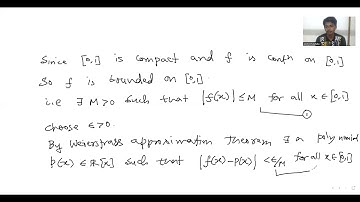 Since [0,1] is compact and f is contn on [0,1]
So f is bounded on [0,1].
i.e ∃ M>0 such that |f(x)| ≤ M for all x ∈ [0,1]
①
choose ε>0.
By Weierstrass approximation theorem ∃ a polynomial
p(x) ∈ ℝ[x] such that |f(x)-p(x)| < ε/M for all x ∈ [0,1]